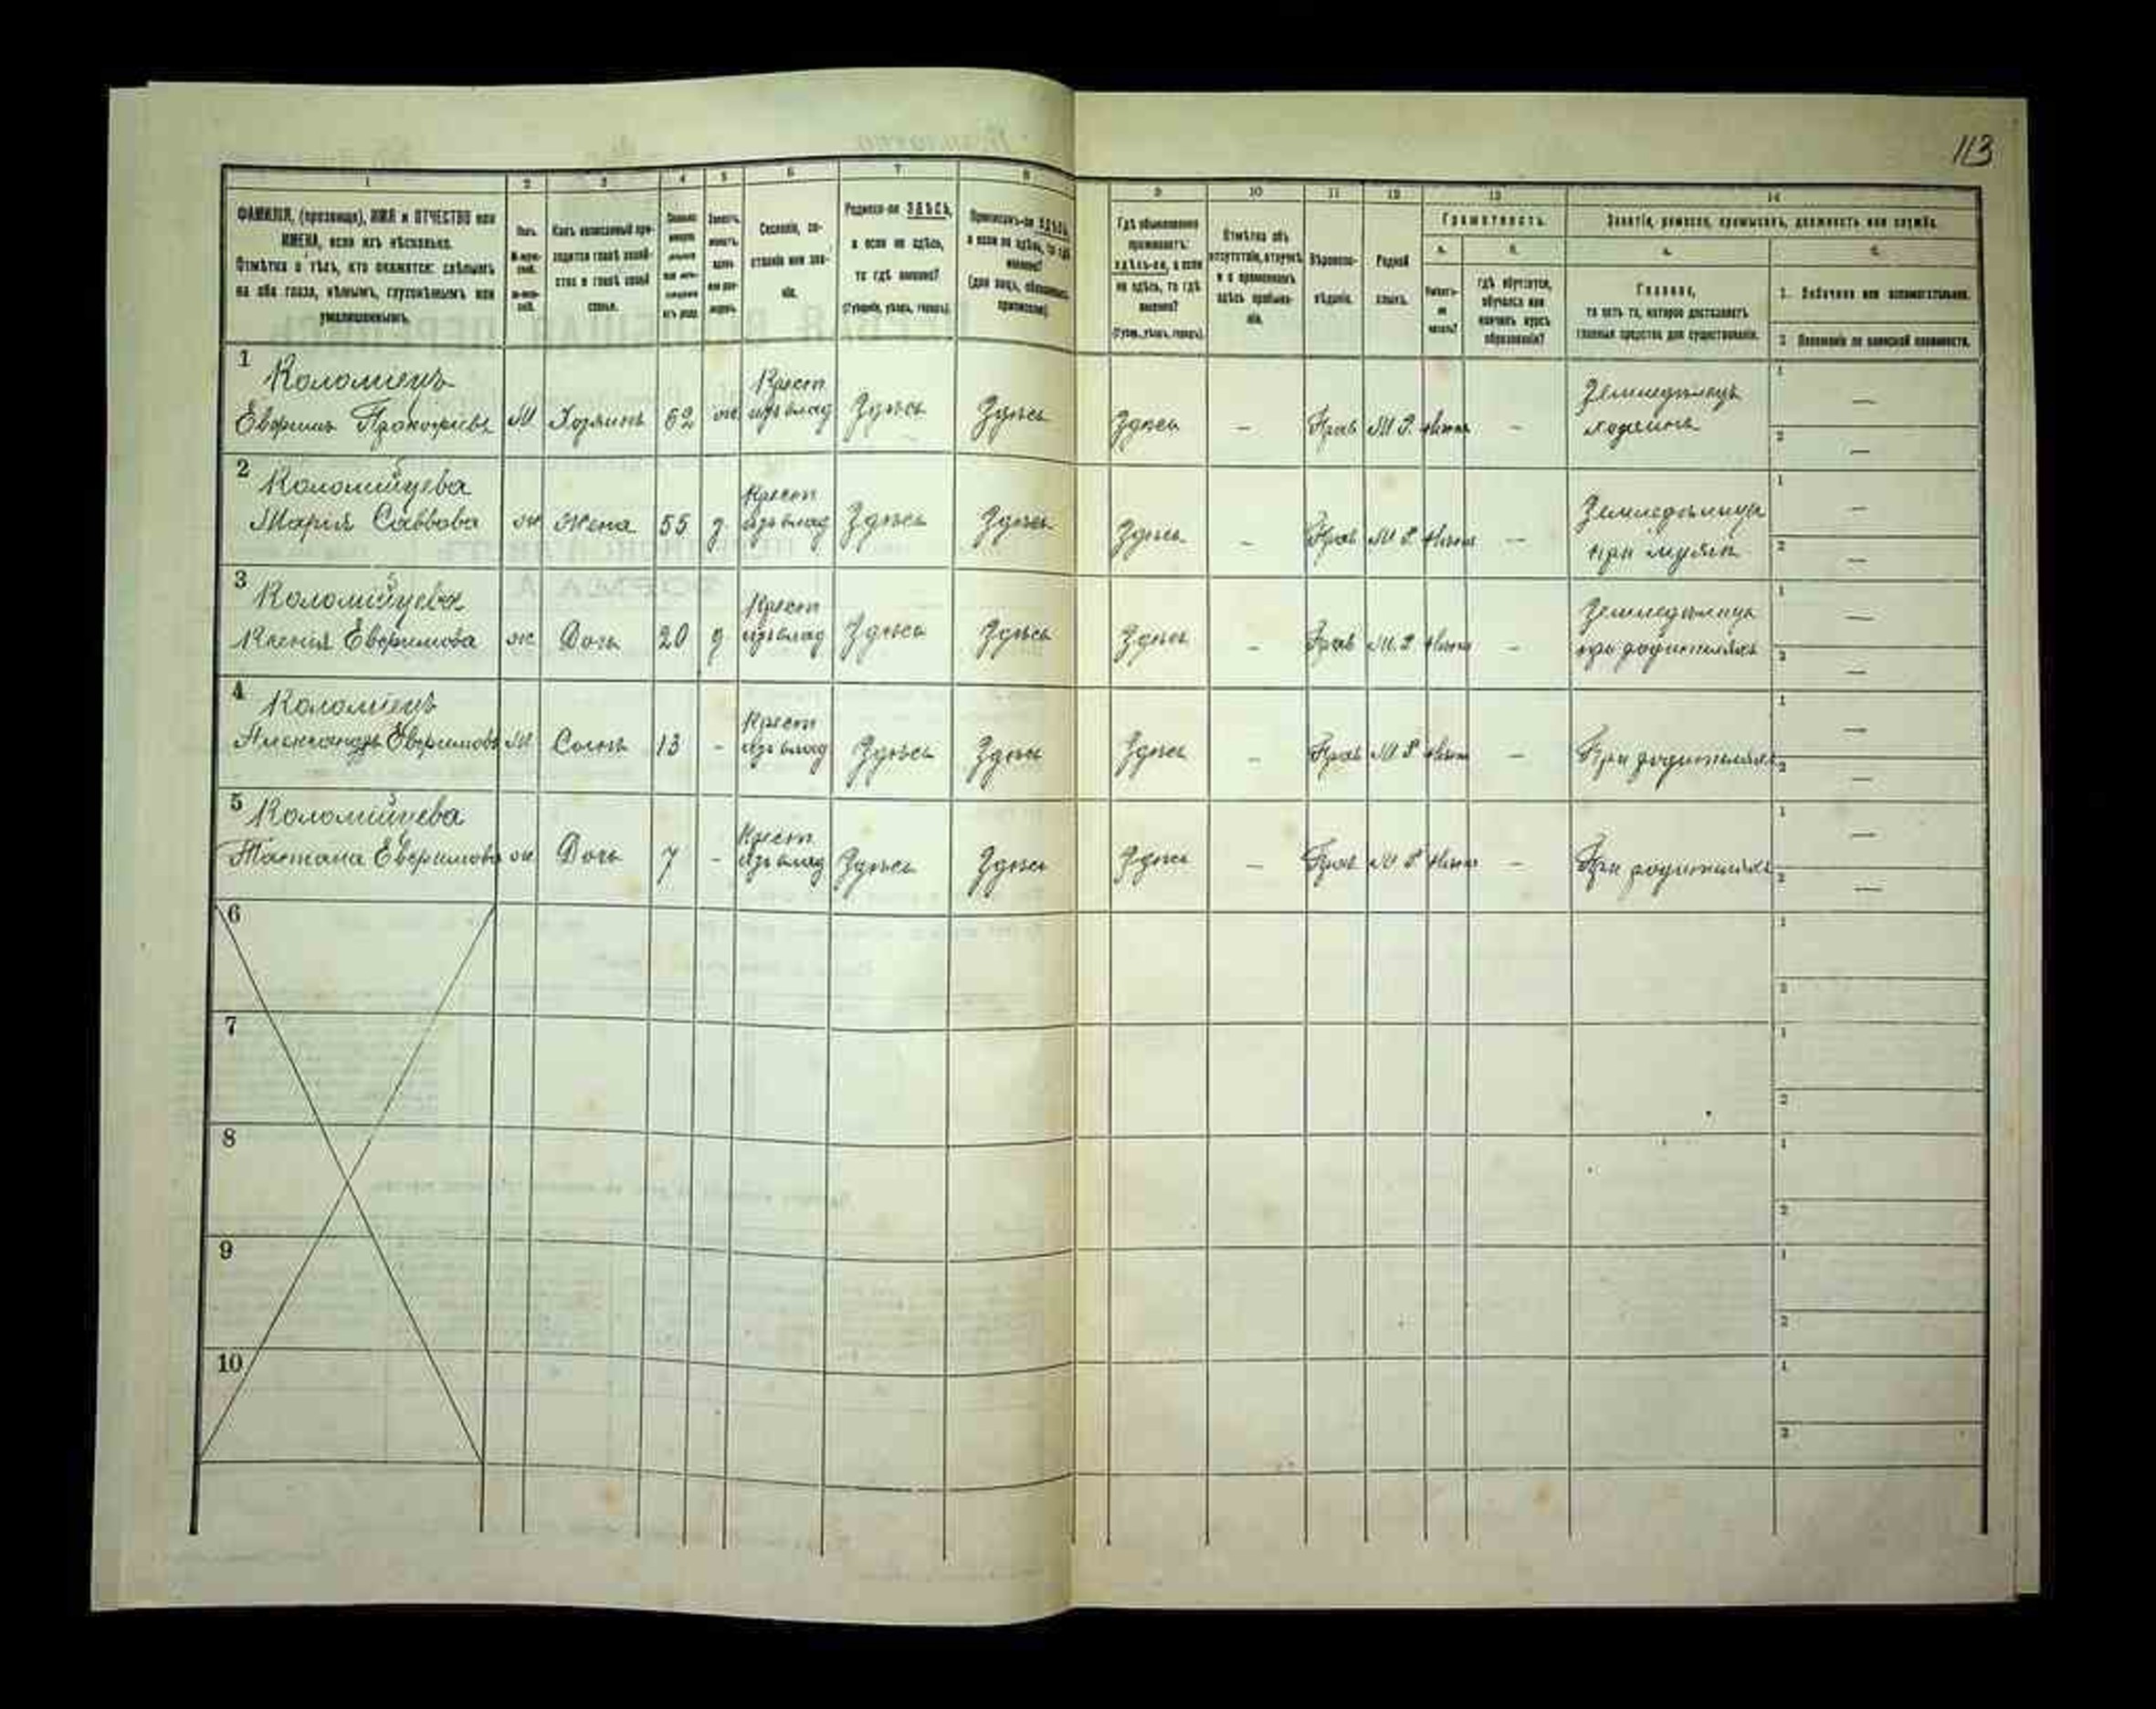 113
1 2 3 4 5 6 7 8 9 10 11 12 13 14
ФАМИЛІЯ, (прозвище), ИМЯ и ОТЧЕСТВО или
ИМЕНА, если ихъ нѣсколько.
Отмѣтка о тѣхъ, кто окажется: слѣпымъ
на оба глаза, нѣмымъ, глухонѣмымъ или
умалишеннымъ.
Полъ.
Какъ записанный при-
ходится главѣ хозяй-
ства и главѣ своей
семьи.
Сословіе, со-
стояніе или зва-
ніе.
Родился-ли ЗДѢСЬ,
а если не здѣсь,
то гдѣ именно?
(Губернія, уѣздъ, городъ).
Приписанъ-ли ЗДѢСЬ,
а если не здѣсь, то гдѣ
именно?
(для лицъ, обязанныхъ
припиской).
Гдѣ обыкновенно
проживаетъ:
здѣсь-ли, а если
не здѣсь, то гдѣ
именно?
(Губ., уѣздъ, городъ).
Отмѣтка объ
отсутствіи, отлучкѣ
и о временномъ
здѣсь пребыва-
ніи.
Вѣроиспо-
вѣданіе.
Родной
языкъ.
Грамотность.
а. б.
Умѣетъ-
ли
читать?
гдѣ обучается,
обучался или
кончилъ курсъ
образованія?
Занятіе, ремесло, промыселъ, должность или служба.
а. б.
Главное,
то есть то, которое доставляетъ
главныя средства для существованія.
1. Побочное или вспомогательное.
2. Положеніе по воинской повинности.
1 Коломіецъ Крест Земледѣлецъ 1 —
Евфимъ Прокофіевъ М Хозяинъ 62 ж изъ влад Здѣсь Здѣсь Здѣсь — Прав М Р. — хозяинъ 2 —
2 Коломійцева Крест Земледѣлица 1 —
Марія Саввова ж Жена 55 з изъ влад Здѣсь Здѣсь Здѣсь — Прав М Р — при мужѣ 2 —
3 Коломійцева Крест Земледѣлица 1 —
Ксенія Евфимова ж Дочь 20 изъ влад Здѣсь Здѣсь Здѣсь — Прав М. Р — при родителяхъ 2 —
4 Коломіецъ Крест 1 —
Александръ Евфимовъ М Сынъ 13 - изъ влад Здѣсь Здѣсь Здѣсь — Прав М Р — При родителяхъ 2 —
5 Коломійцева Крест 1 —
Татіана Евфимова ж Дочь 7 - изъ влад Здѣсь Здѣсь Здѣсь — Прав М Р — При родителяхъ 2 —
6 1
2
7 1
2
8 1
2
9 1
2
10 1
2